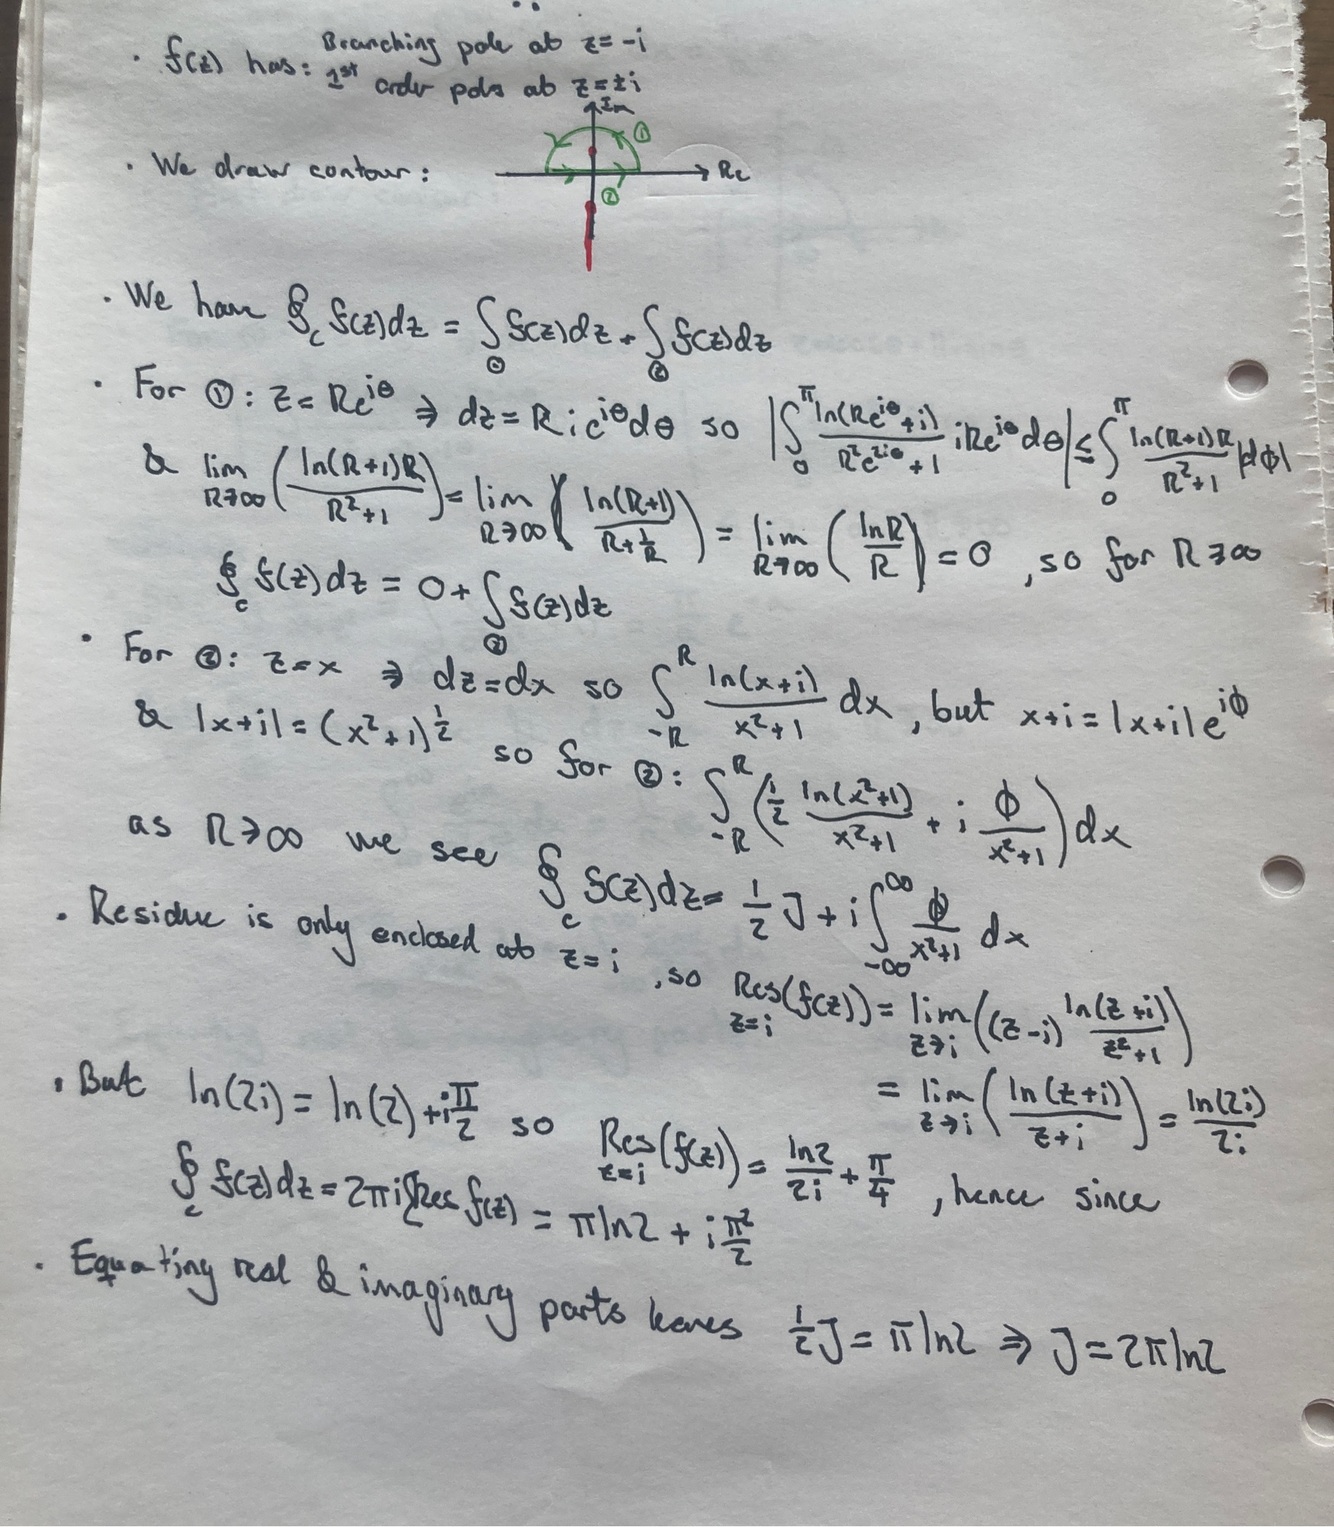 · f(z) has: Branching pole at z = -i
1st order poles at z = ±i
Im
①
· We draw contour: Re
②
· We have ∮_C f(z)dz = ∫_① f(z)dz + ∫_② f(z)dz
· For ①: z = Re^{iθ} ⇒ dz = Rie^{iθ}dθ so |∫_0^π ln(Re^{iθ}+i)/(R²e^{2iθ}+1) iRe^{iθ}dθ| ≤ ∫_0^π ln(R+1)R/(R²+1) |dϕ|
& lim_{R→∞} (ln(R+1)R/(R²+1)) = lim_{R→∞} (ln(R+1)/(R+1/R)) = lim_{R→∞} (lnR/R) = 0, so for R→∞
∮_C f(z)dz = 0 + ∫_② f(z)dz
· For ②: z=x ⇒ dz=dx so ∫_{-R}^{R} ln(x+i)/(x²+1) dx, but x+i = |x+i|e^{iϕ}
& |x+i| = (x²+1)^{1/2} so for ②: ∫_{-R}^{R} (1/2 ln(x²+1)/(x²+1) + i ϕ/(x²+1)) dx
as R→∞ we see ∮_C f(z)dz = 1/2 J + i∫_{-∞}^{∞} ϕ/(x²+1) dx
· Residue is only enclosed at z=i, so Res_{z=i}(f(z)) = lim_{z→i} ((z-i) ln(z+i)/(z²+1))
= lim_{z→i} (ln(z+i)/(z+i)) = ln(2i)/2i
· But ln(2i) = ln(2) + iπ/2 so Res_{z=i}(f(z)) = ln2/2i + π/4, hence since
∮_C f(z)dz = 2πi ΣRes f(z) = πln2 + iπ²/2
· Equating real & imaginary parts leaves 1/2 J = πln2 ⇒ J = 2πln2